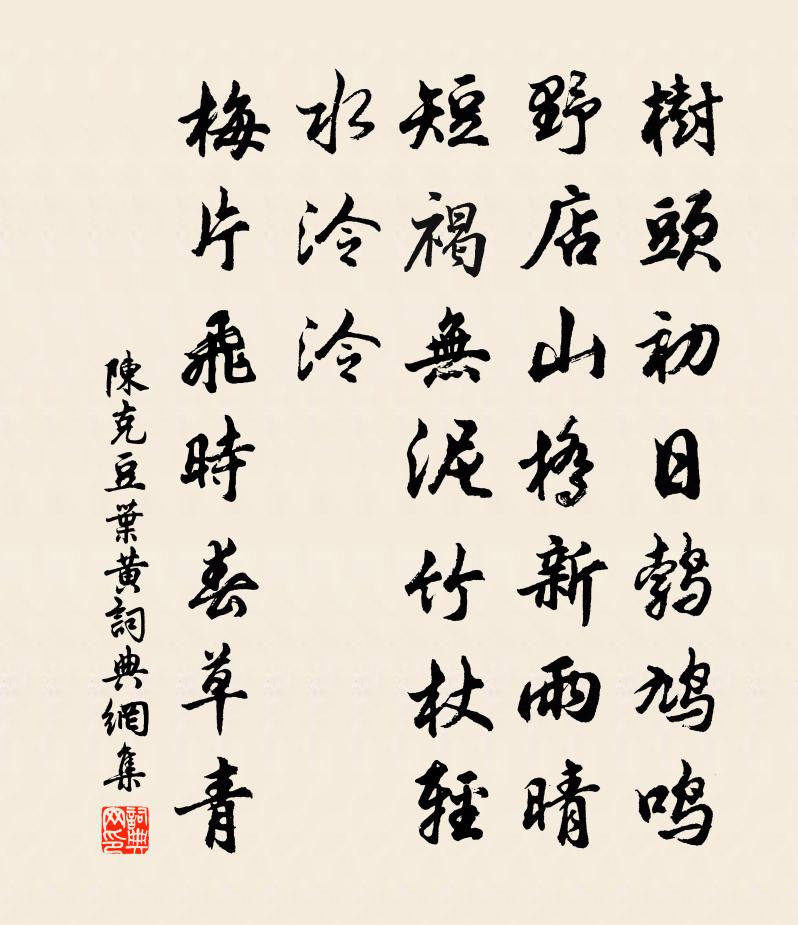 樹頭初日鵓鳩鳴
野店山橋新雨晴
短褐無泥竹杖輕
水泠泠
梅片飛時春草青
陳克豆葉黄詞典網集
詞典网印